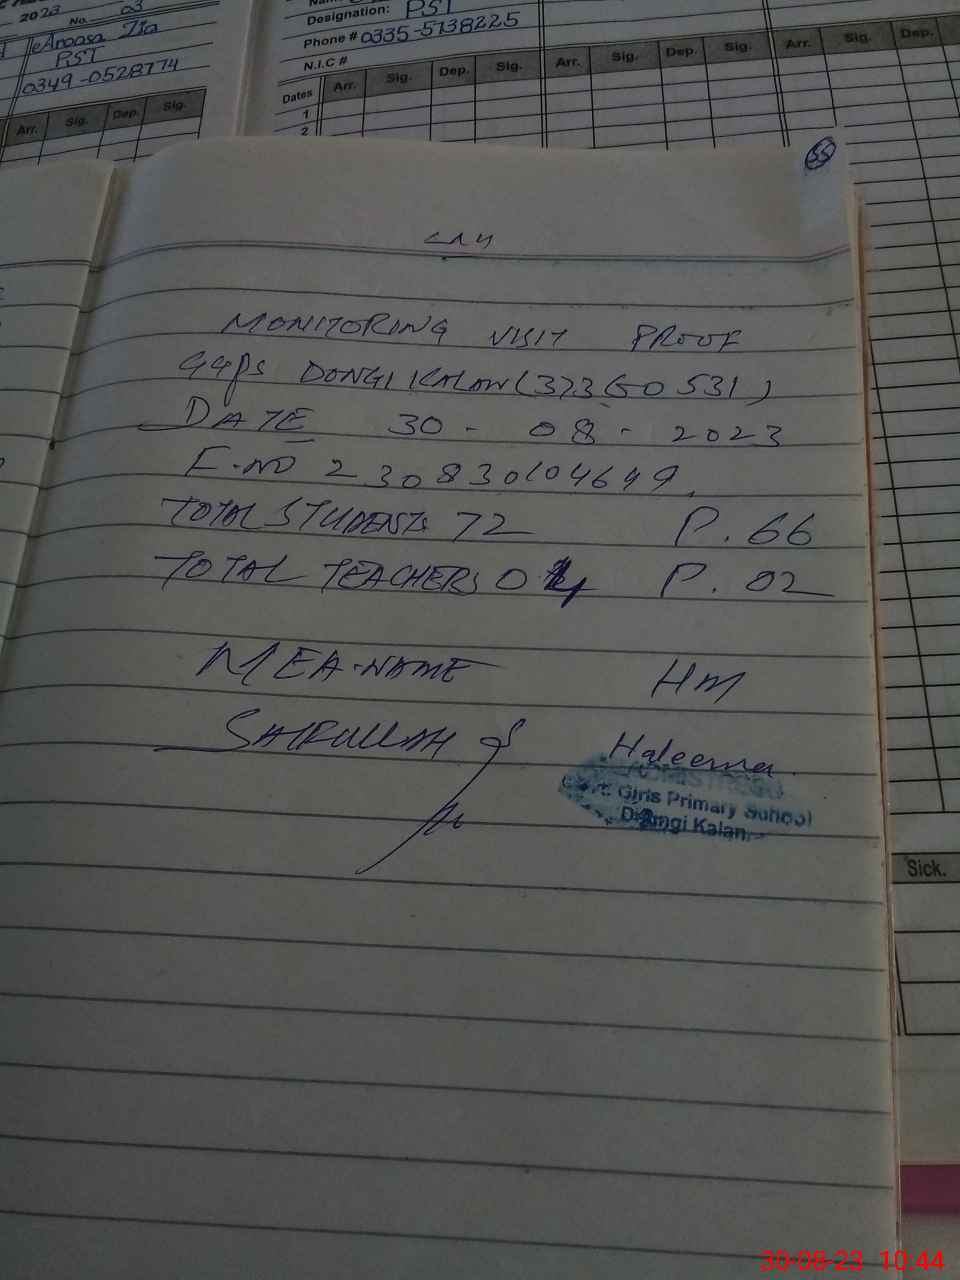 2023 No. 03
Anoosa Zia
PST
0349-0528774
Arr. Sig. Dep. Sig.
Designation: PST
Phone # 0335-5138225
N.I.C #
Dates Arr. Sig. Dep. Sig. Arr. Sig. Dep. Sig. Arr. Sig. Dep.
1
2
55
MONITORING VISIT PROOF
GGPS DONGI KALAN (37360531)
DATE 30-08-2023
F-NO 230830104649.
TOTAL STUDENTS 72 P. 66
TOTAL TEACHERS 04 P. 02
MEA-NAME HM
SAIFULLAH Haleema
Girls Primary School
Dhungi Kalan
Sick.
30-08-23 10:44